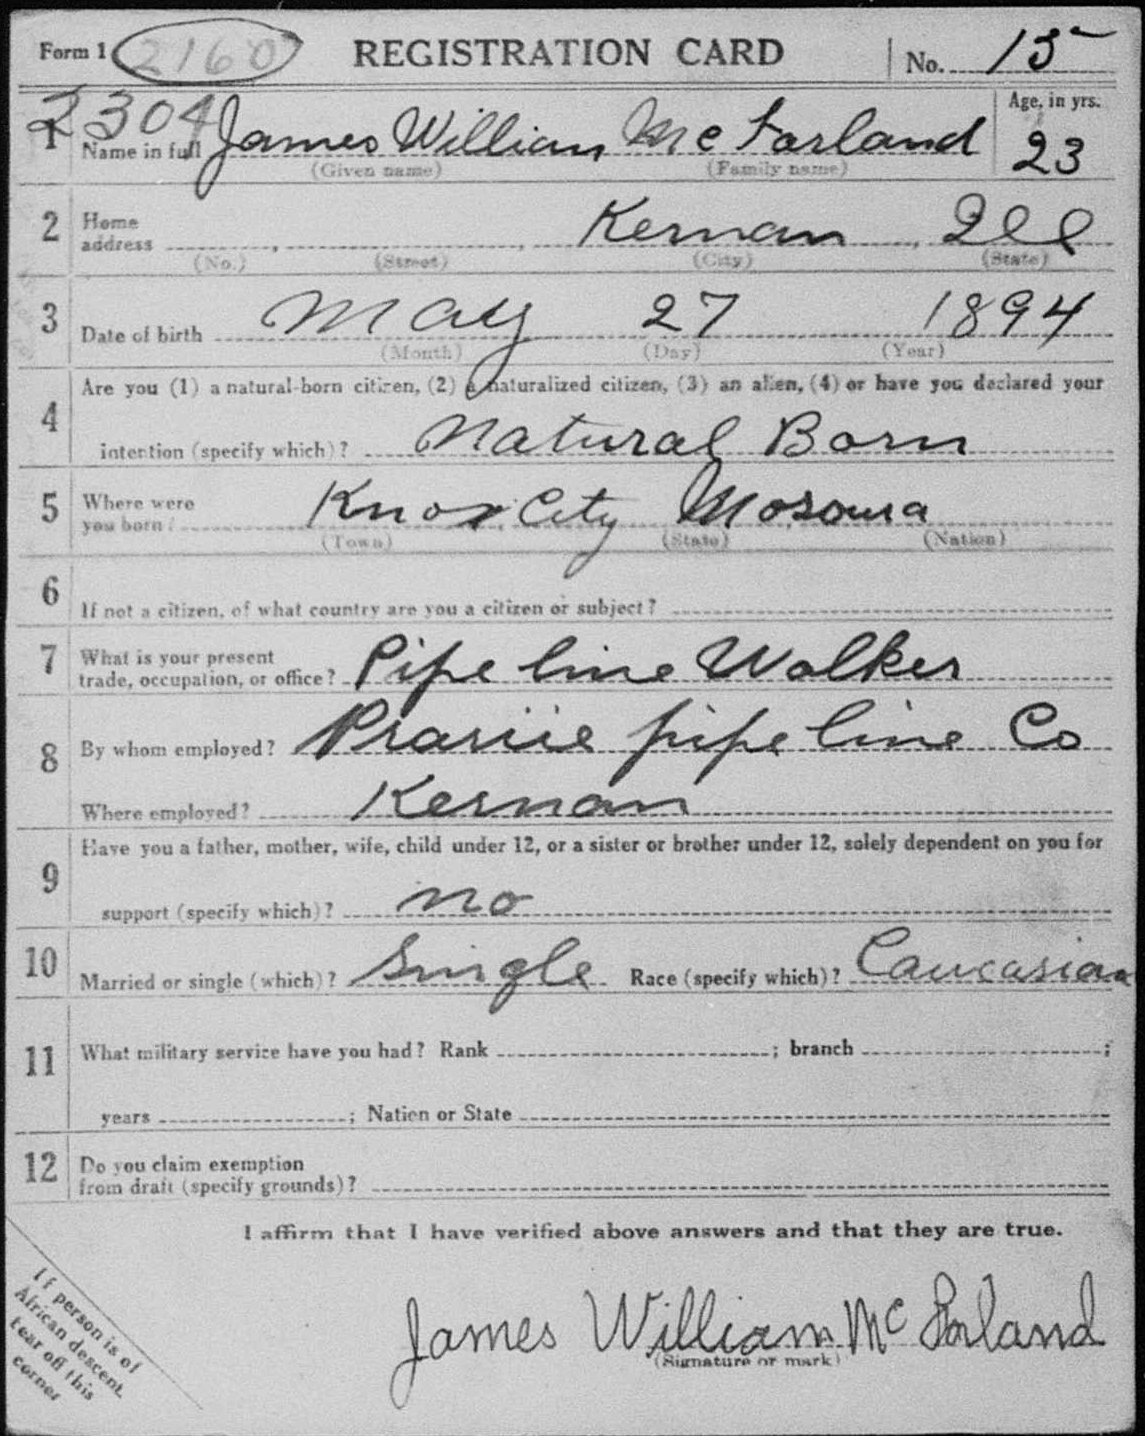 Form 1 2160 REGISTRATION CARD No. 15
2304
1 Name in full James William McFarland Age, in yrs. 23
(Given name) (Family name)
2 Home address Kernan, Ill
(No.) (Street) (City) (State)
3 Date of birth May 27 1894
(Month) (Day) (Year)
Are you (1) a natural-born citizen, (2) a naturalized citizen, (3) an alien, (4) or have you declared your
4 intention (specify which)? Natural Born
5 Where were you born? Knox City Mosoura
(Town) (State) (Nation)
6 If not a citizen, of what country are you a citizen or subject?
7 What is your present trade, occupation, or office? Pipe line Walker
8 By whom employed? Prariie pipe line Co
Where employed? Kernan
Have you a father, mother, wife, child under 12, or a sister or brother under 12, solely dependent on you for
9 support (specify which)? no
10 Married or single (which)? Single Race (specify which)? Caucasian
11 What military service have you had? Rank ; branch ;
years ; Nation or State
12 Do you claim exemption
from draft (specify grounds)?
I affirm that I have verified above answers and that they are true.
James William McFarland
(Signature or mark)
If person is of
African descent,
tear off this
corner